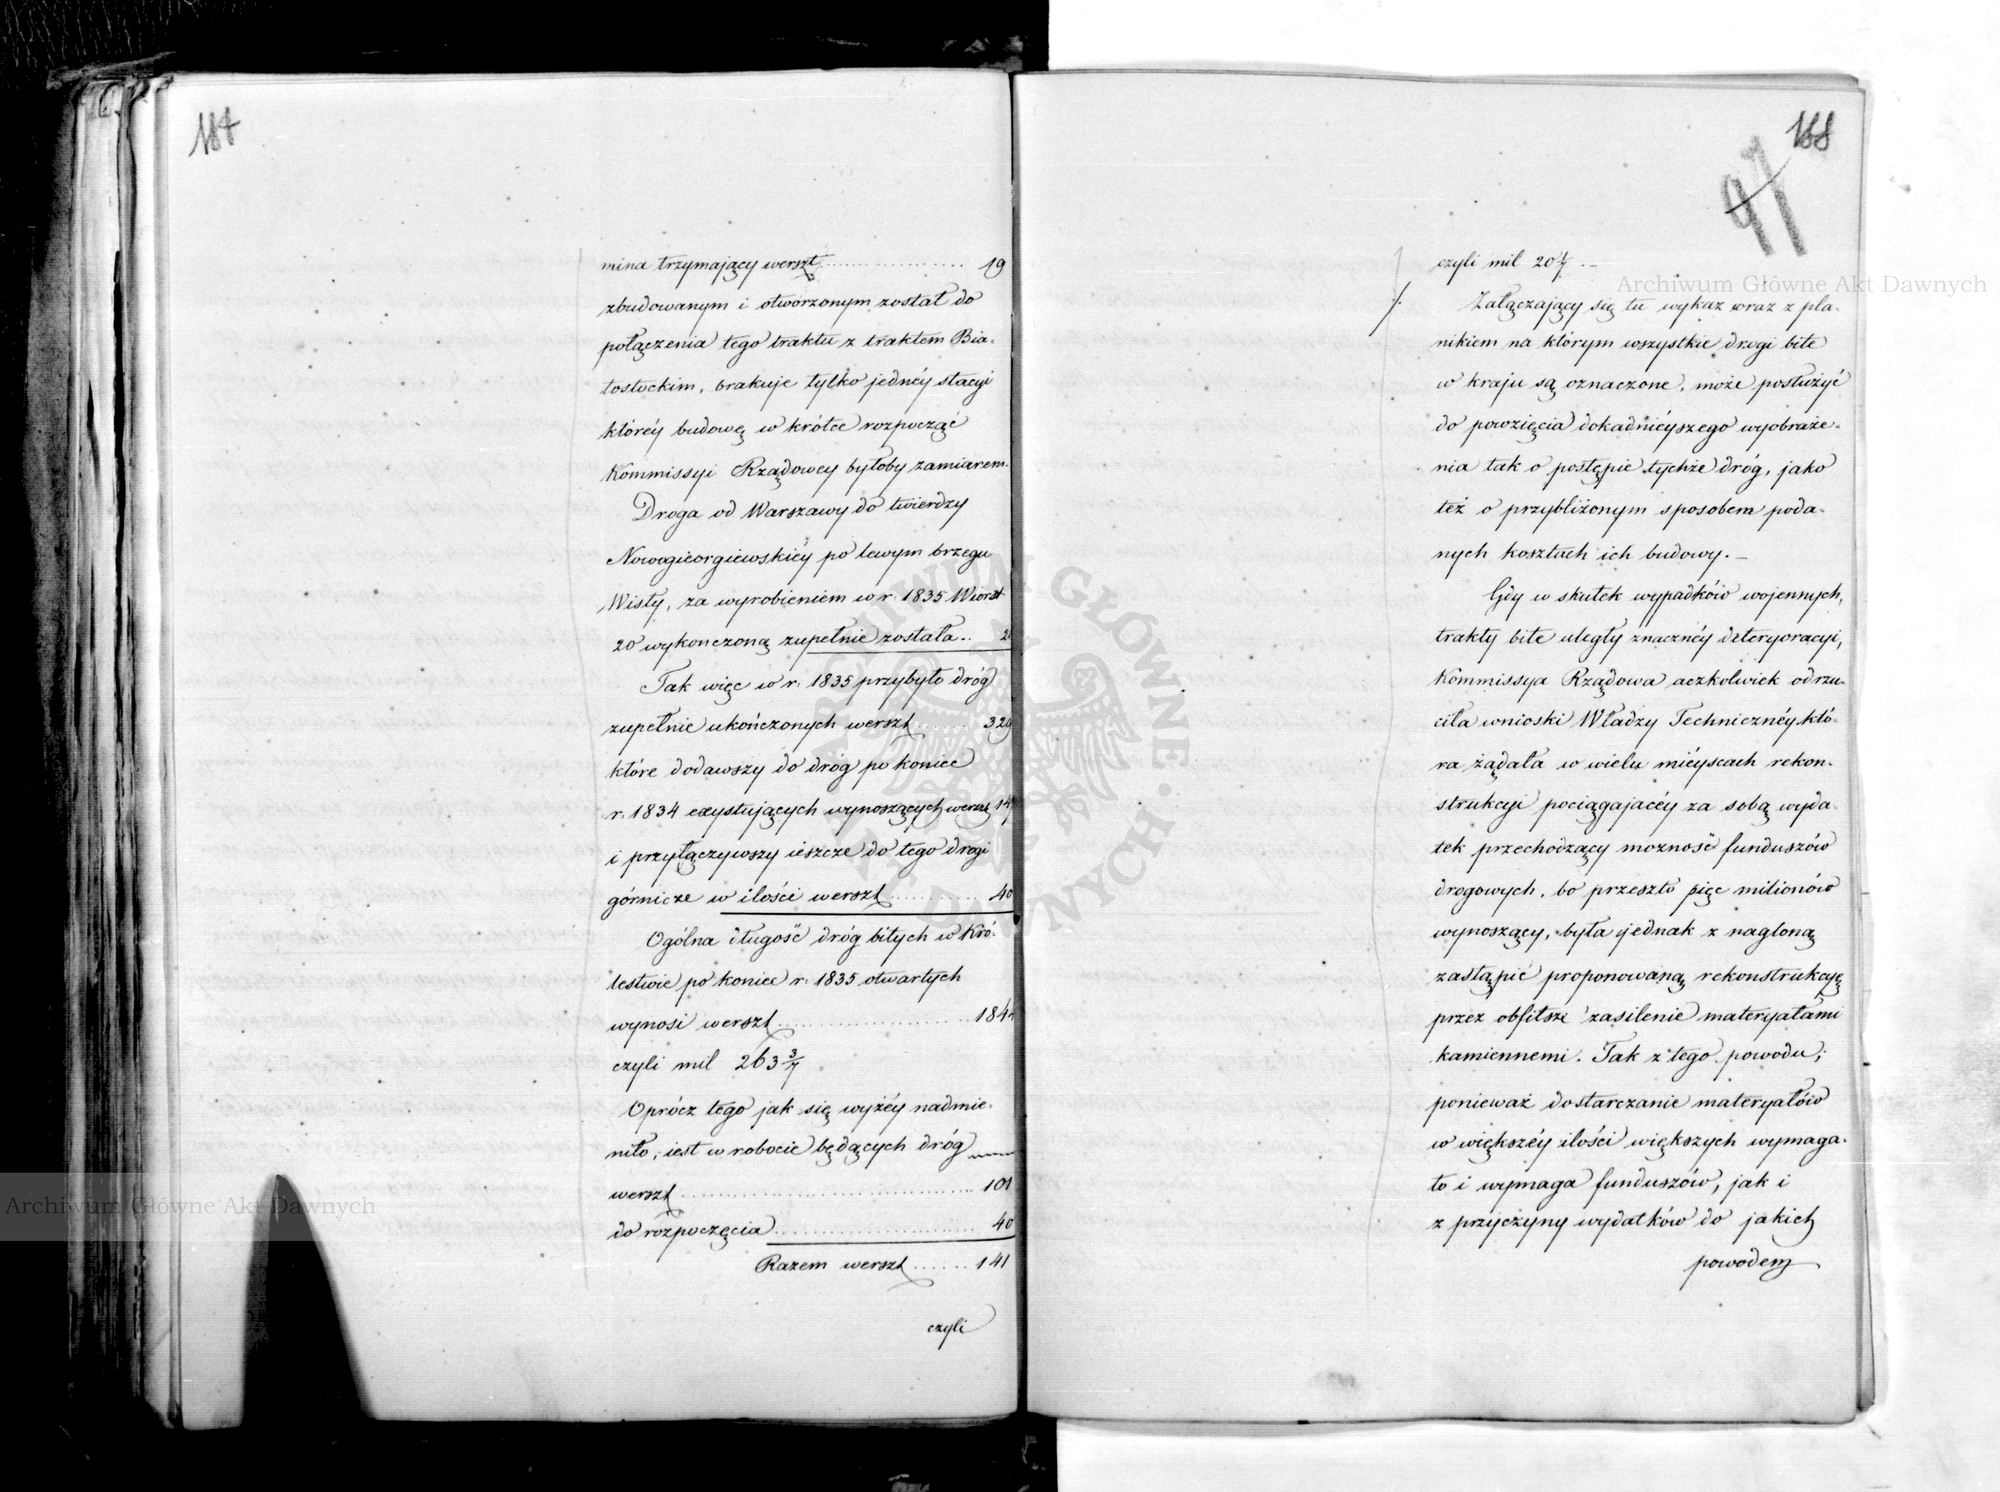 187
mina trzymający werszt 19
zbudowanym i otworzonym został do
połączenia tego traktu z traktem Bia-
łostockim, brakuje tylko jednéy stacyi
któréy budowę w krótce rozpocząć
Kommissyi Rządowey byłoby zamiarem.
Droga od Warszawy do twierdzy
Nowogieorgiewskiéy po lewym brzegu
Wisły, za wyrobieniem w r. 1835 Wiorst
20 wykonczoną zupełnie została..
Tak więc w r. 1835 przybyło dróg
zupełnie ukończonych werszt 329
które dodawszy do dróg po koniec
r. 1834 exystujących wynoszących werszt
i przyłączywszy ieszcze do tego drogi
górnicze w ilości werszt 40
Ogólna długość dróg bitych w Kró-
lestwie po koniec r. 1835 otwartych
wynosi werszt 1844
czyli mil 263 3/7
Oprócz tego jak się wyżéy nadmie-
niło, iest w robocie będących dróg
werszt 101
do rozpoczęcia 40
Razem werszt 141
czyli
188
97
czyli mil 20 1/7
Załączający się tu wykaz wraz z pla-
nikiem na którym wszystkie drogi bite
w kraju są oznaczone, może posłużyć
do powzięcia dokadniéyszego wyobraże-
nia tak o postępie tychże dróg, jako
też o przybliżonym sposobem poda-
nych kosztach ich budowy.—
Gdy w skutek wypadków wojennych,
trakty bite uległy znacznéy deteryoracyi,
Kommissya Rządowa aczkolwiek odrzu-
ciła wnioski Władzy Technicznéy któ-
ra żądała w wielu miéyscach rekon-
strukcyi pociągajacéy za sobą wyda-
tek przechodzący możność funduszów
drogowych, bo przeszło pięc milionów
wynoszący, była jednak z nagloną
zastąpić proponowaną rekonstrukcyę
przez obfitsze zasilenie materyałami
kamiennemi. Tak z tego powodu,
ponieważ dostarczanie materyałów
w większéy ilości większych wymaga-
ło i wymaga funduszów, jak i
z przyczyny wydatków do jakich
powodem
Archiwum Główne Akt Dawnych
Archiwum Główne Akt Dawnych
ARCHIWUM GŁÓWNE AKT DAWNYCH